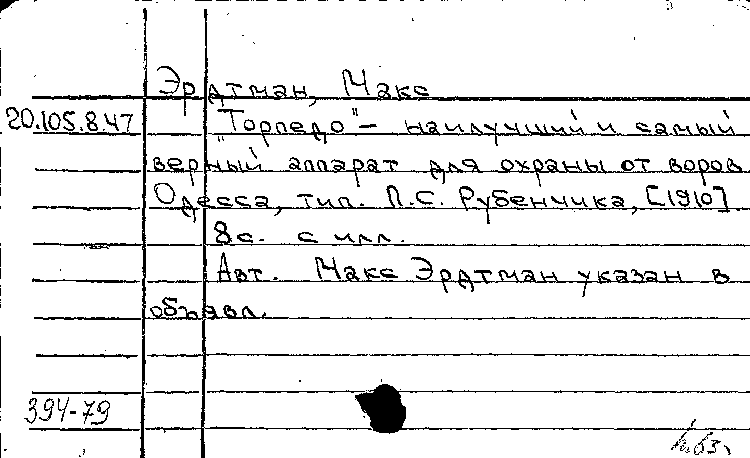 Эрдтман, Макс
20.105.8.47
"Торпедо" – наилучший и самый
верный аппарат для охраны от воров
Одесса, тип. П.С. Рубенчика, [1910]
8с. с илл.
Авт. Макс Эрдтман указан в
объявл.
394-79